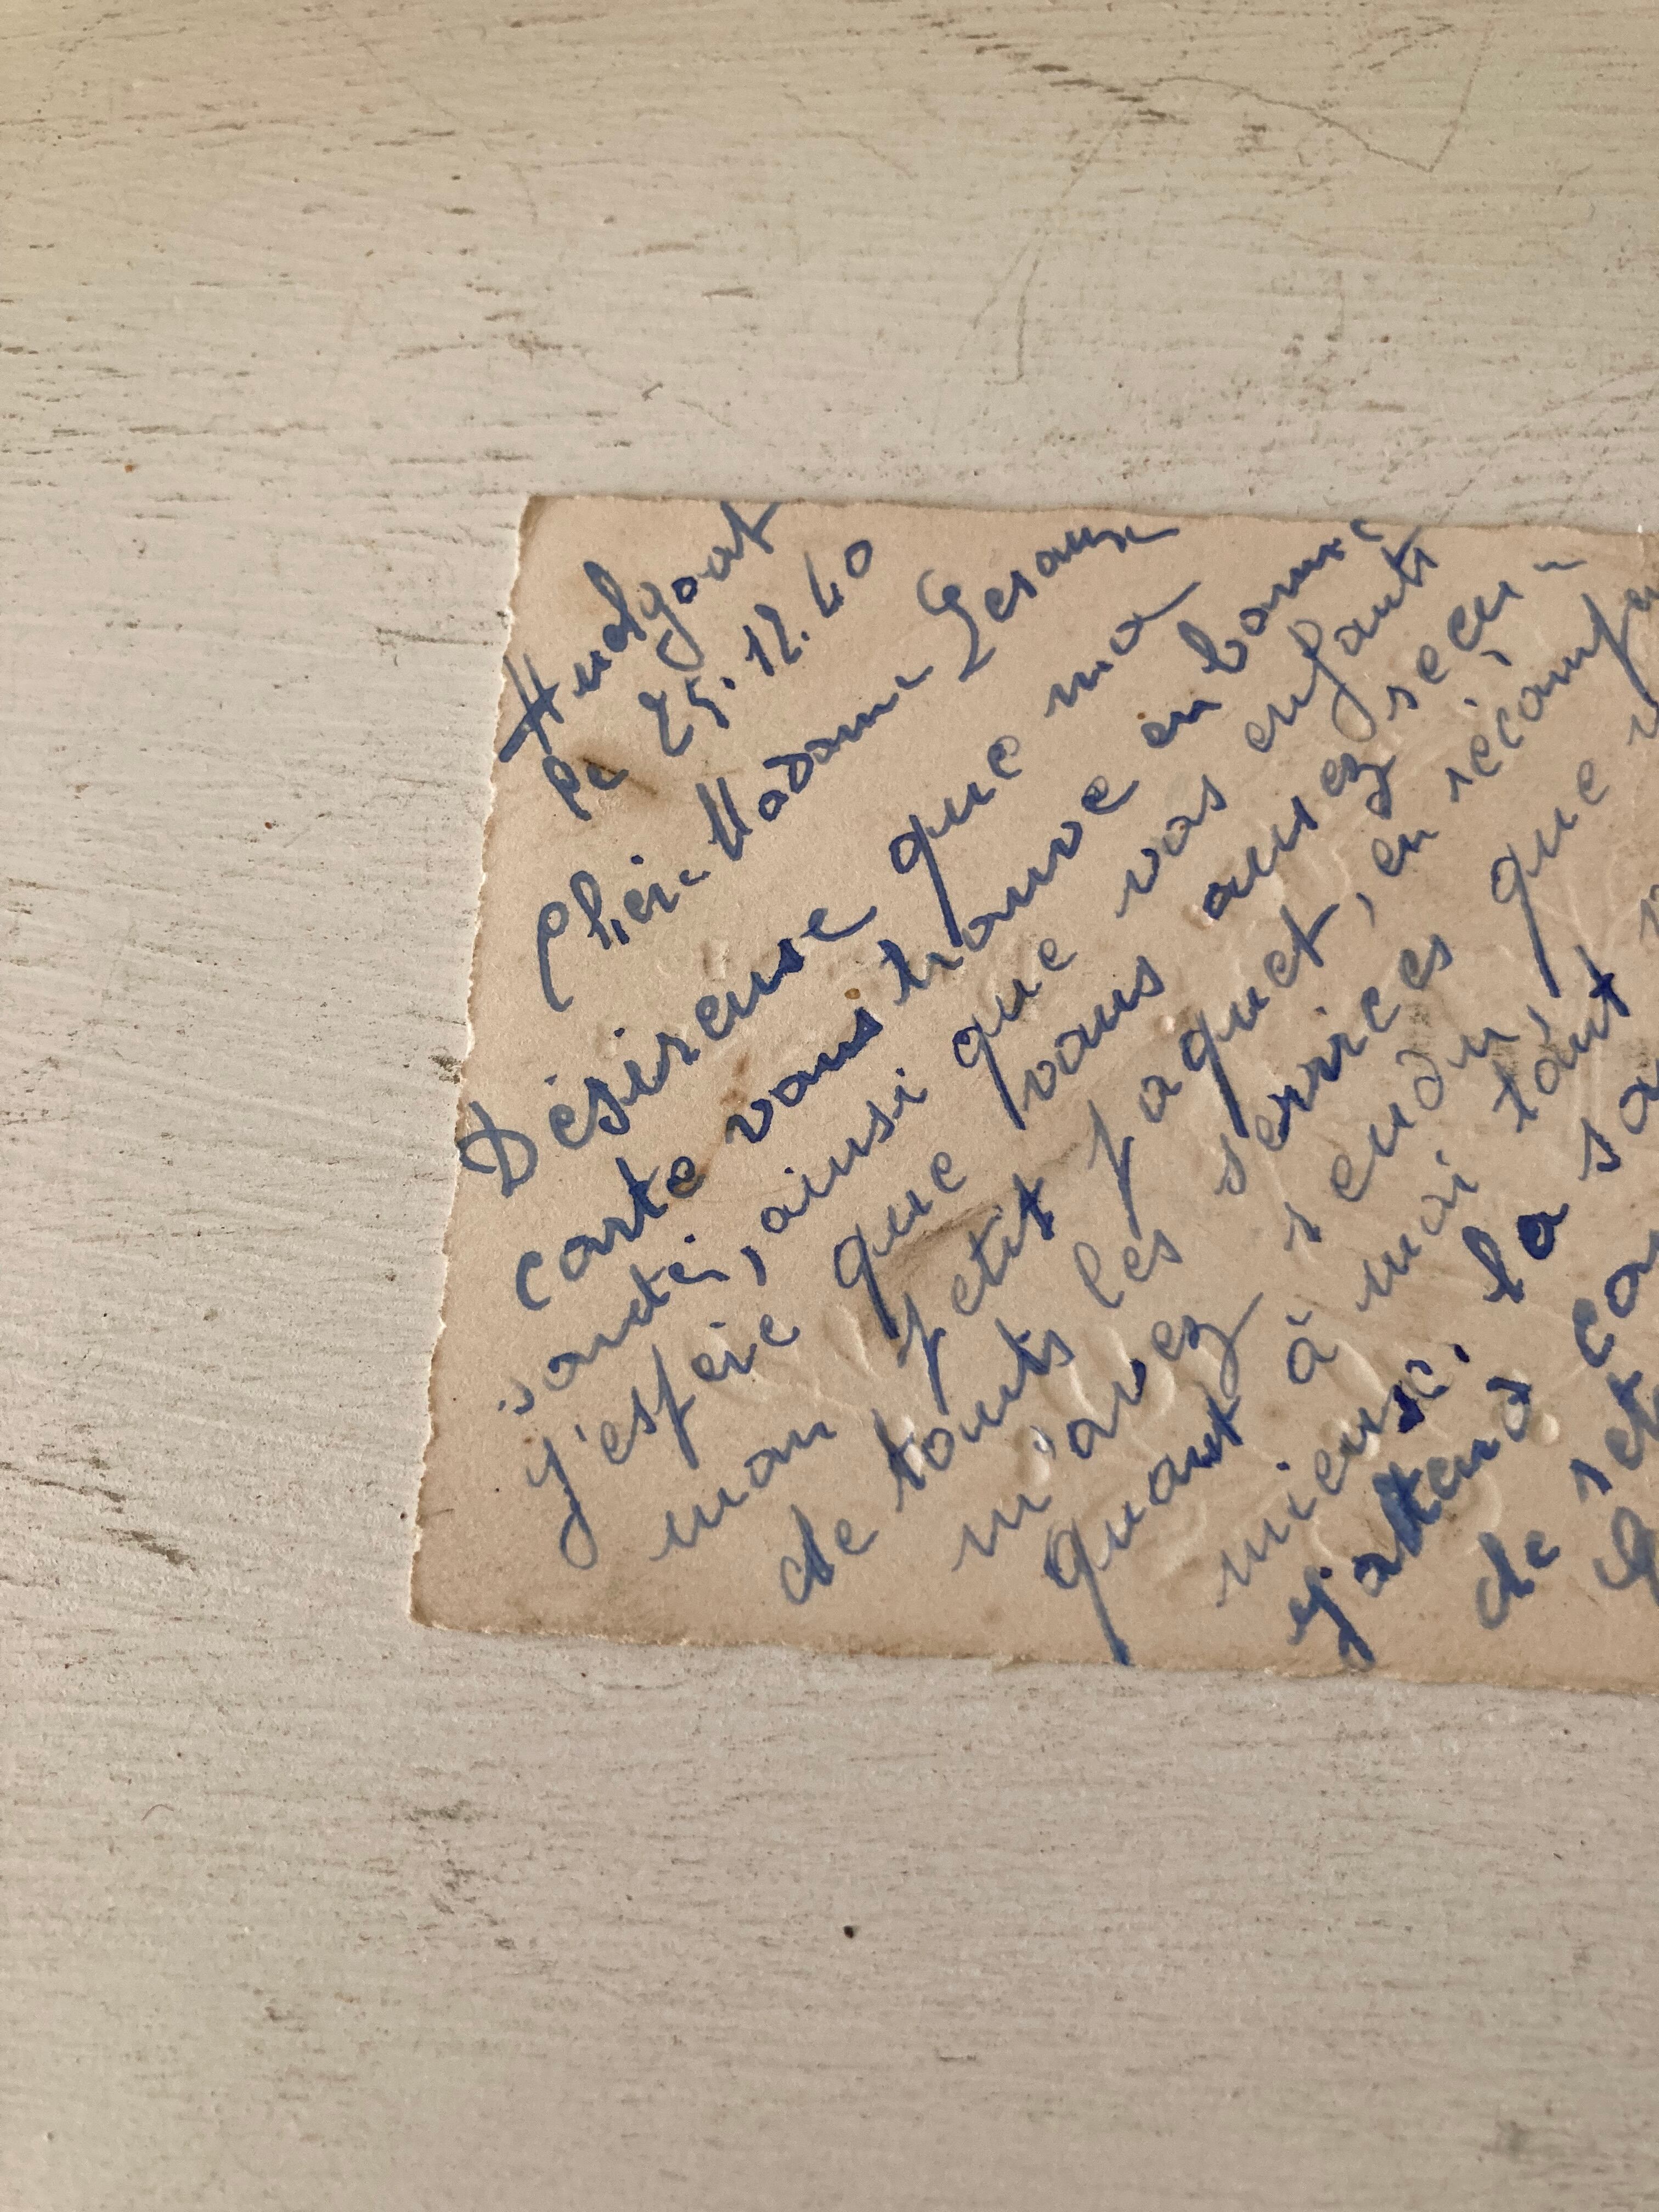 Huelgoat
le 25.12.40
Chère Madame
Désireuse que ma
carte vous trouve en bonne
santé, ainsi que vos enfants
j'espère que vous aurez reçu
mon petit paquet, en
de touts les services que
m'avez rendu,
quant à moi tout
mieux. la
j'attend
de